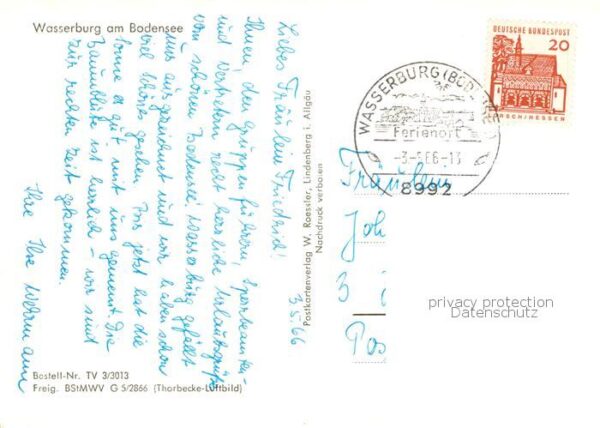 Wasserburg am Bodensee
3.5.66
Liebes Fräulein Friedrich!
Ihnen, den Gruppenführern, Sparbeamten
und Vertretern recht herzliche Urlaubsgrüße
vom schönen Bodensee. Wasserburg gefällt
uns ausgezeichnet und wir haben schon
viel Schönes gesehen. Bis jetzt hat die
Sonne es gut mit uns gemeint. Die
Baumblüte ist herrlich - wir sind
zur rechten Zeit gekommen.
Ihre Ilse
Bestell-Nr. TV 3/3013
Freig. BStMWV G 5/2866 (Thorbecke-Luftbild)
Postkartenverlag W. Roessler, Lindenberg i. Allgäu
Nachdruck verboten
DEUTSCHE BUNDESPOST
20
LORSCH/HESSEN
WASSERBURG (BODENSEE)
Ferienort
-3.-5.66-13
8992
Fräulein
Joh
3
Pos
privacy protection
Datenschutz